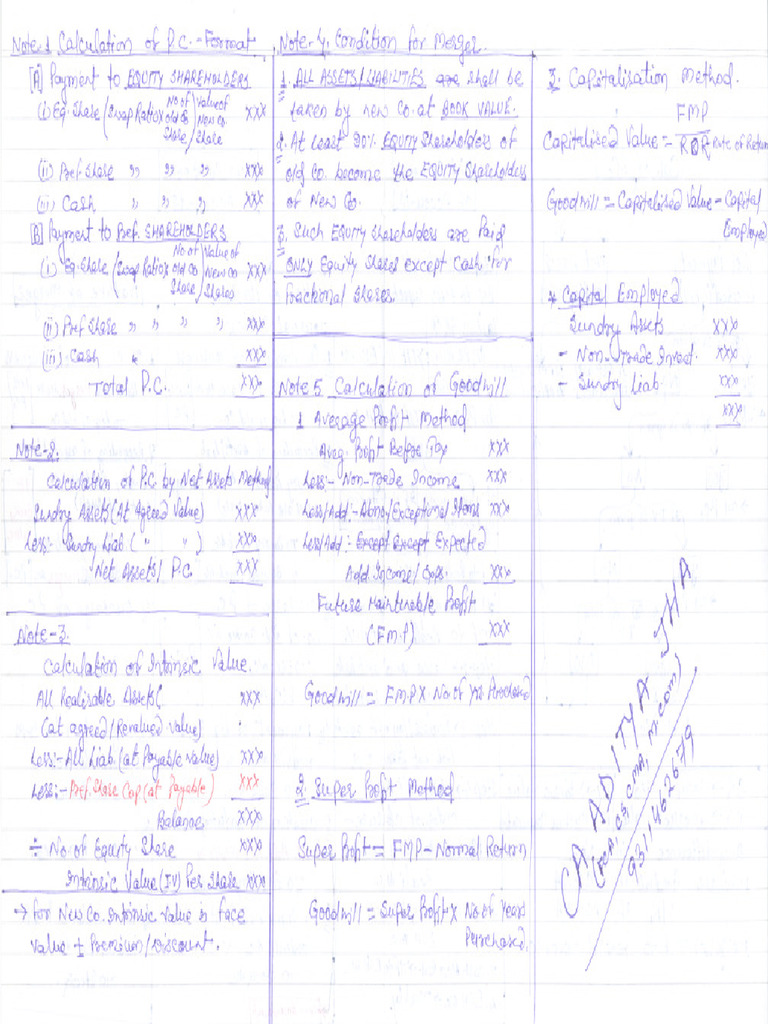 Note-1 Calculation of P.C. - Format
[A] Payment to EQUITY SHAREHOLDERS
(i) Eq. Share (Swap Ratio x No of old Co Share) Value of New Co. Share xxx
(ii) Pref. Share " " " xxx
(iii) Cash " " " xxx
[B] Payment to Pref. SHAREHOLDERS
(i) Eq. Share (Swap Ratio x No of old Co Share) Value of New Co Shares xxx
(ii) Pref Share " " " " xxx
(iii) Cash " xxx
Total P.C. xxx
Note-2.
Calculation of P.C. by Net Assets Method
Sundry Assets (At Agreed Value) xxx
Less:- Sundry Liab ( " " ) xxx
Net Assets/ P.C. xxx
Note-3.
Calculation of Intrinsic Value.
All Realisable Assets( xxx
(at agreed/Revalued Value)
Less:- All Liab (at Payable value) xxx
Less:- Pref. Share Cap (at Payable) xxx
Balance xxx
÷ No of Equity Share xxx
Intrinsic Value (IV) Per Share xxx
→ for New Co. Intrinsic Value is face
Value ± Premium/Discount.
Note-4. Condition for Merger.
1. ALL ASSETS/LIABILITIES are shall be
taken by new Co. at BOOK VALUE.
2. At least 90% EQUITY Shareholders of
old Co. become the EQUITY Shareholders
of New Co.
3. Such EQUITY Shareholders are Paid
ONLY Equity Shares except Cash for
fractional Shares.
Note 5 Calculation of Goodwill
1 Average Profit Method
Avg. Profit Before Tax xxx
Less:- Non-Trade Income xxx
Less/Add:- Abno/Exceptional Items xxx
Less/Add:- Except Except Expected
Add. Income/Exps. xxx
Future Maintainable Profit
(FMP) xxx
Goodwill = FMP x No of yrs Purchased
2 Super Profit Method
Super Profit = FMP - Normal Return
Goodwill = Super Profit x No of Years
Purchased.
3. Capitalisation Method.
FMP
Capitalised Value = ROR Rate of Return
Goodwill = Capitalised Value - Capital
Employed
* Capital Employed
Sundry Assets xxx
- Non-Trade Invest. xxx
- Sundry Liab. xxx
xxx
CA ADITYA JHA
(FCA, CS, CMA, M.Com)
9311462679